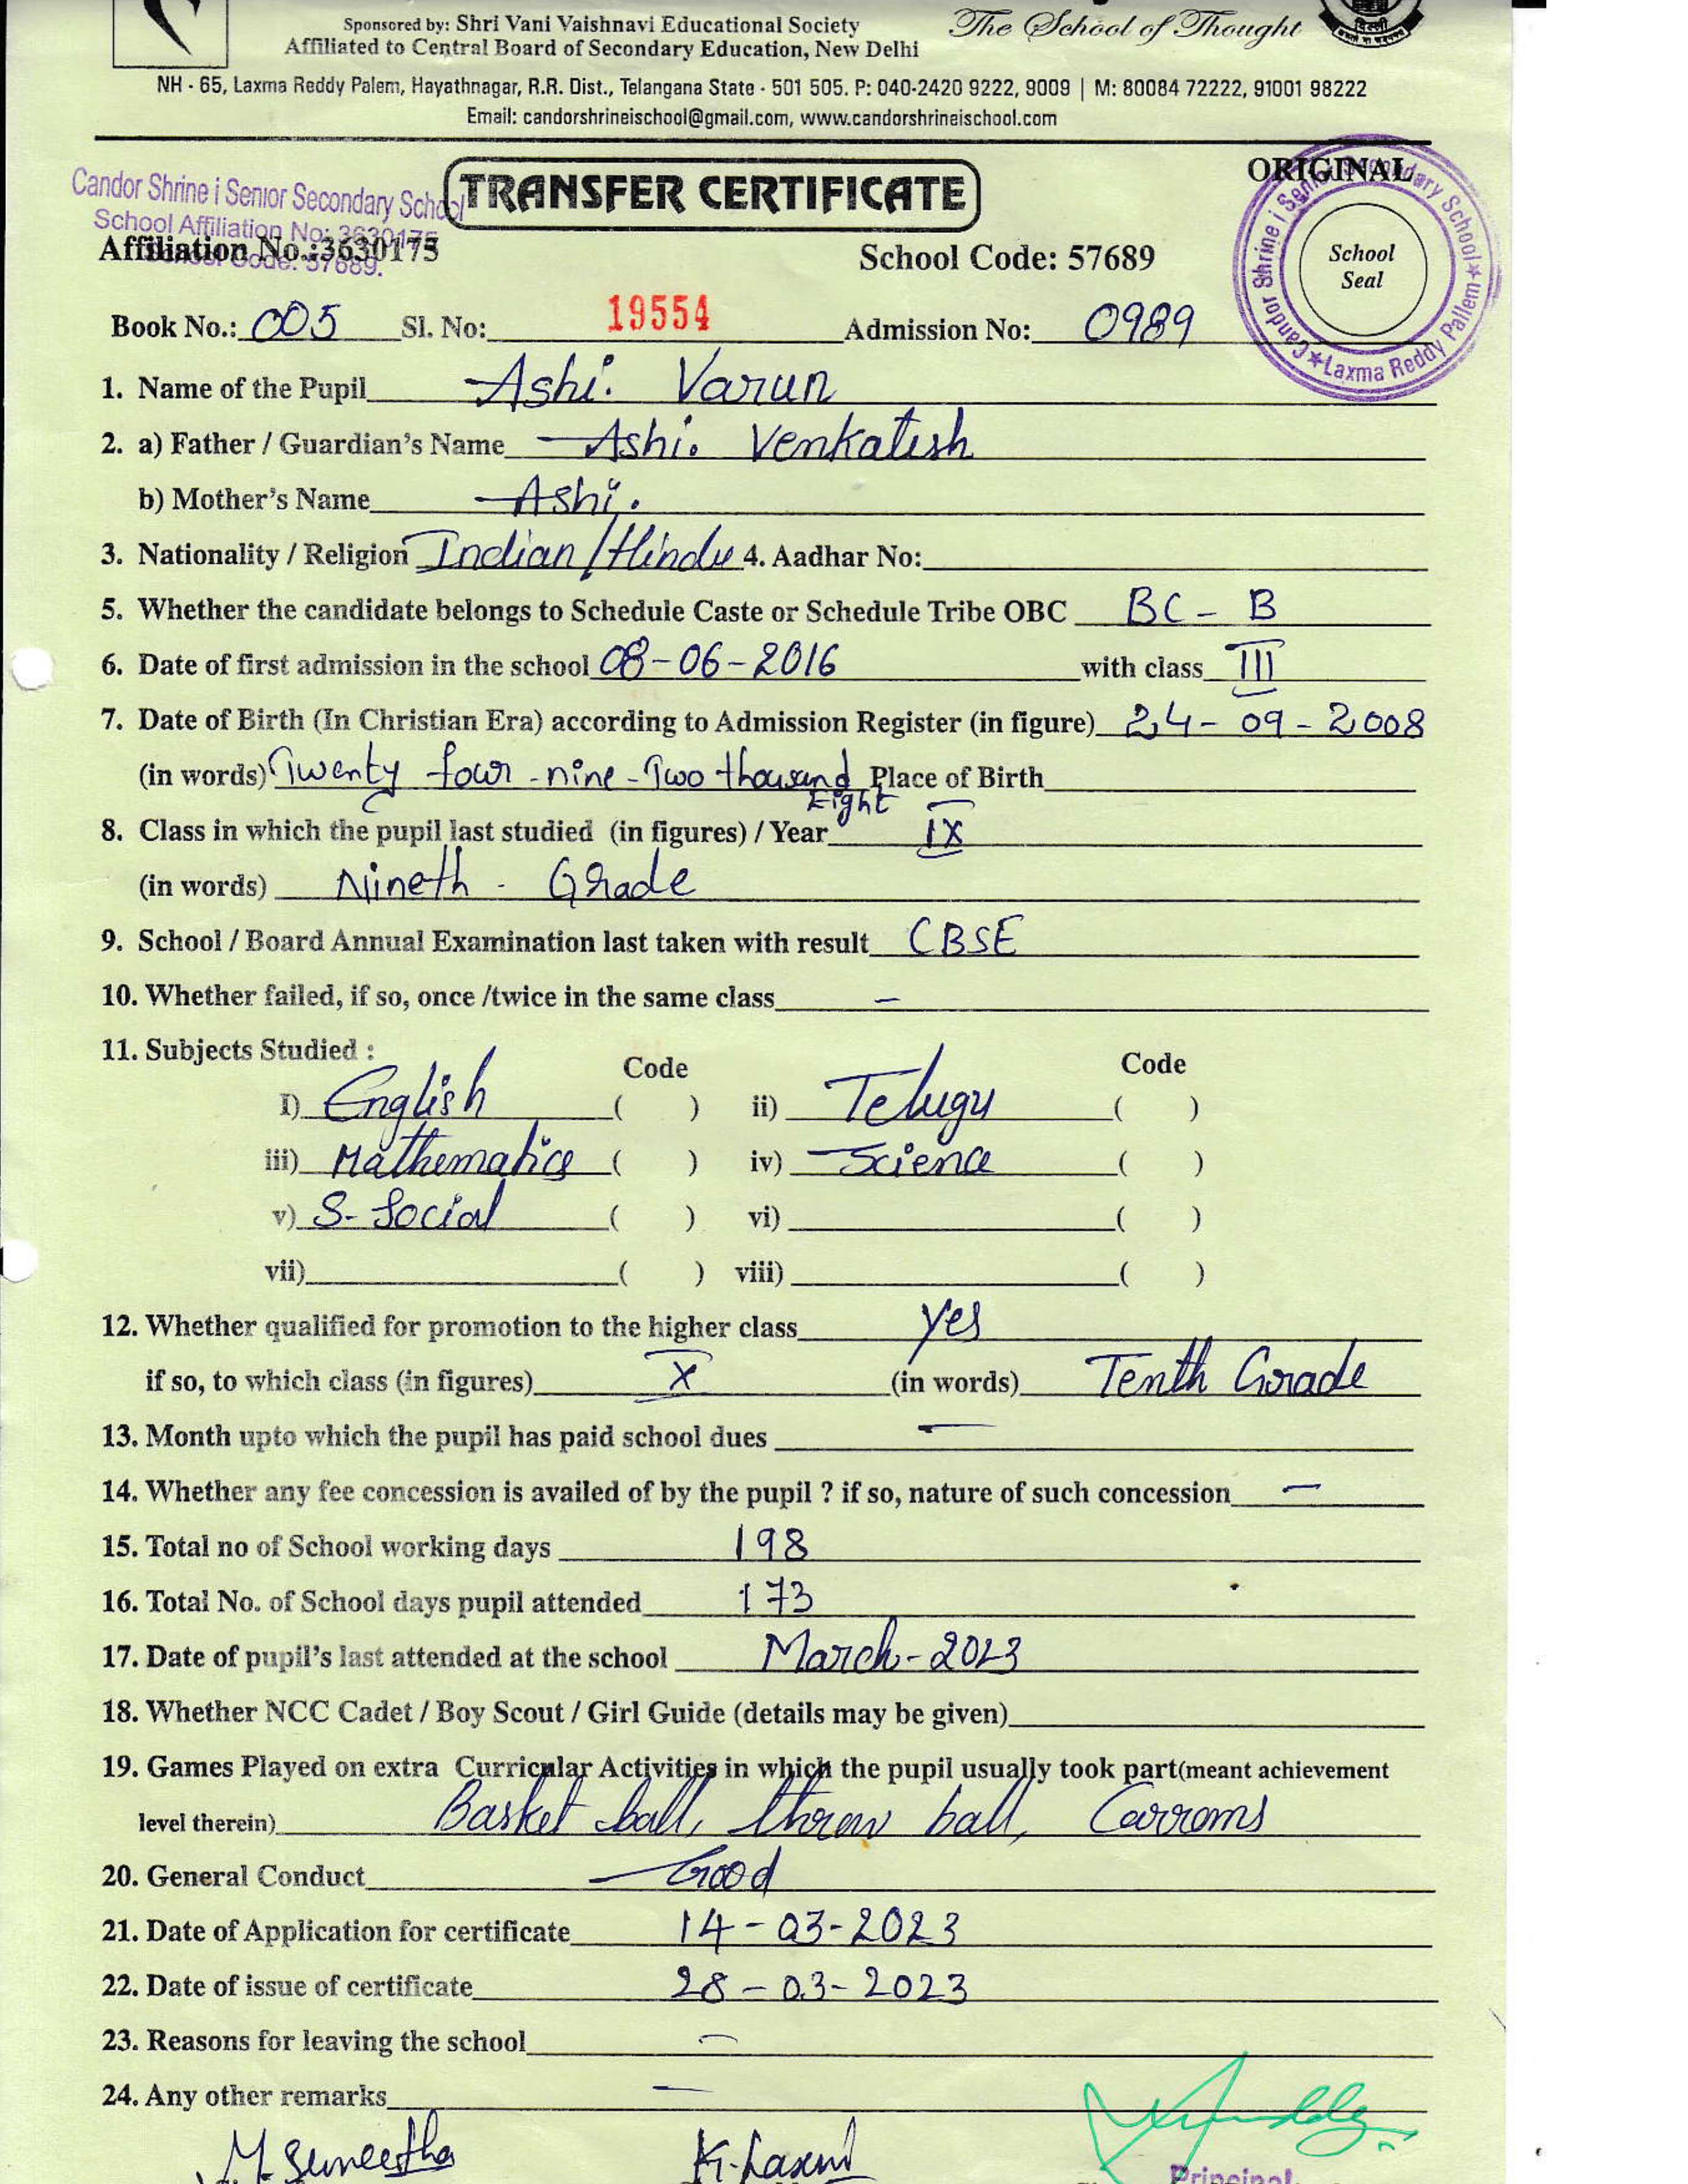 Sponsored by: Shri Vani Vaishnavi Educational Society
The School of Thought
Affiliated to Central Board of Secondary Education, New Delhi
NH - 65, Laxma Reddy Palem, Hayathnagar, R.R. Dist., Telangana State - 501 505. P: 040-2420 9222, 9009 | M: 80084 72222, 91001 98222
Email: candorshrineischool@gmail.com, www.candorshrineischool.com
ORIGINAL
Candor Shrine i Senior Secondary School
TRANSFER CERTIFICATE
School Affiliation No: 3630175
School Code: 57689.
Candor Shrine i Senior Secondary School ★ Laxma Reddy Pallem ★
School Seal
Affiliation No.:3630175 School Code: 57689
Book No.: 005 Sl. No: 19554 Admission No: 0989
1. Name of the Pupil Ashi. Varun
2. a) Father / Guardian's Name Ashi. Venkatesh
b) Mother's Name Ashi.
3. Nationality / Religion Indian/Hindu 4. Aadhar No:
5. Whether the candidate belongs to Schedule Caste or Schedule Tribe OBC BC - B
6. Date of first admission in the school 08-06-2016 with class III
7. Date of Birth (In Christian Era) according to Admission Register (in figure) 24-09-2008
(in words) Twenty four - nine - Two thousand Eight Place of Birth
8. Class in which the pupil last studied (in figures) / Year IX
(in words) Nineth - Grade
9. School / Board Annual Examination last taken with result CBSE
10. Whether failed, if so, once /twice in the same class –
11. Subjects Studied : Code Code
I) English ( ) ii) Telugu ( )
iii) Mathematics ( ) iv) Science ( )
v) S-Social ( ) vi) ( )
vii) ( ) viii) ( )
12. Whether qualified for promotion to the higher class yes
if so, to which class (in figures) X (in words) Tenth Grade
13. Month upto which the pupil has paid school dues –
14. Whether any fee concession is availed of by the pupil ? if so, nature of such concession –
15. Total no of School working days 198
16. Total No. of School days pupil attended 173
17. Date of pupil's last attended at the school March-2023
18. Whether NCC Cadet / Boy Scout / Girl Guide (details may be given)
19. Games Played on extra Curricular Activities in which the pupil usually took part(meant achievement
level therein) Basket ball, throw ball, Carroms
20. General Conduct Good
21. Date of Application for certificate 14-03-2023
22. Date of issue of certificate 28-03-2023
23. Reasons for leaving the school –
24. Any other remarks –
M. Suneetha K. Laxmi
Principal